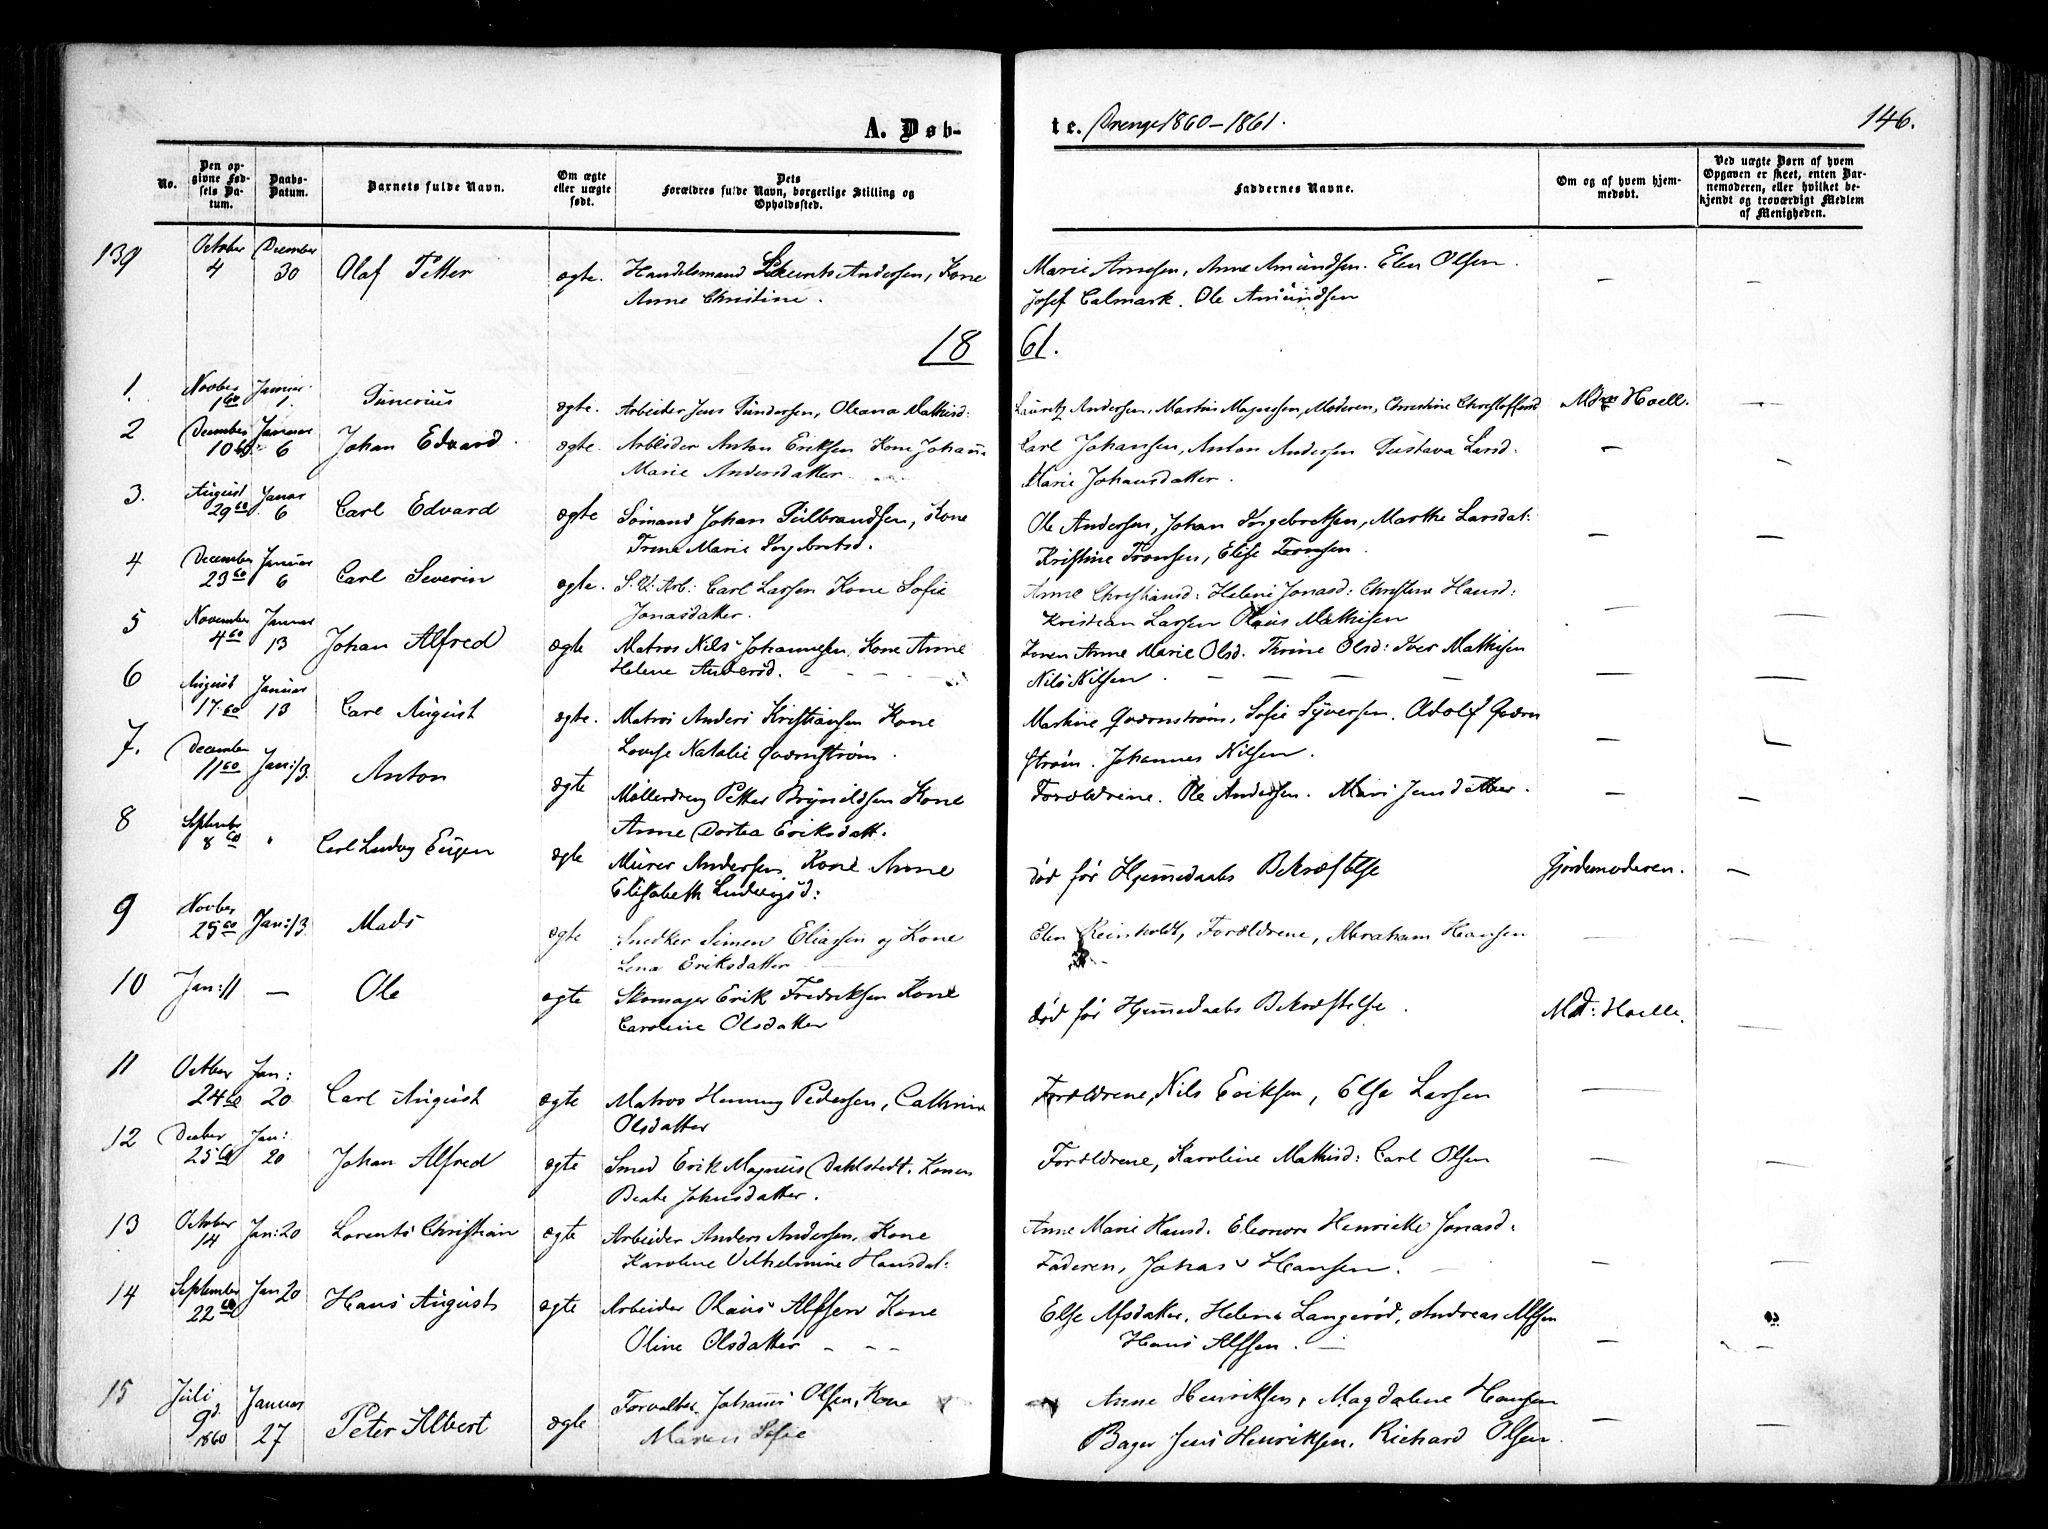 A. Døb-
te. Drenge 1860-1861.
146.
No.
Den op-
givne Fød-
sels Da-
tum.
Daabs-
Datum.
Barnets fulde Navn.
Om ægte
eller uægte
født.
Dets
Forældres fulde Navn, borgerlige Stilling og
Opholdssted.
Faddernes Navne.
Om og af hvem hjem-
medøbt.
Ved uægte Børn af hvem
Opgaven er skeet, enten Bar-
nemoderen, eller hvilket be-
kjendt og troværdigt Medlem
af Menigheden.
139 October 4 December 30 Olaf Petter ægte. Handelsmand Andersen, Kone
Anne Christine.
Marie Arnesen, Anne Amundsen. Elen Olsen.
Josef Calmark. Ole Amundsen
—
—
1861.
1. Novber 1 60 Januar 1. ægte. Arbeider Jens Gundersen, Oleana Mathisd:
Lauritz Andersen, Martin Magnesen, Moderen, Christine
Hoell.
—
2 December 10 60 Januar 6 Johan Edvard. ægte. Arbeider Anton Eriksen Kone Johanne
Marie Andersdatter
Carl Johansen, Anton Andersen Gustava Larsd.
Marie Johansdatter.
—
—
3. August 29 60 Januar 6 Carl Edvard ægte Sømand Johan Gulbrandsen, Kone
Marie
Ole Andersen, Johan Ingebretsen, Marthe Larsdat:
Kristine Tronsen, Elise Tronsen.
—
—
4 December 23 60 Januar 6 Carl Severin ægte. Carl Larsen Kone Sofie
Jonasdatter.
Anne Christiansd: Helene Jonasd: Christine Hansd:
Kristian Larsen Olaus Mathisen
—
—
5 November 4 60 Januar 13 Johan Alfred ægte Matros Nils Johannesen, Kone Anne
Helene Andersd. — — — —
Anne Marie Olsd. Thrine Olsd: Iver Mathisen
Nils Nilsen. — — — —
—
—
6 August 17. 60 Januar 13 Carl August ægte. Matros Anders Kristiansen Kone
Lovise Natalie Qvarnstrøm.
Martine Qvarnstrøm, Sofie Syversen. Adolf Qvarn
strøm. Johannes Nilsen.
—
—
7. December 11 60 Jan: 13. Anton ægte Møllerdreng Petter Brynildsen Kone
Anne Dortea Eriksdatt.
Forældrene. Ole Andersen. Mari Jensdatter.
—
—
8 September 8 60 " Carl Ludvig Eugen ægte Murer Andersen, Kone Anne
Elisabeth Ludvigsd:
død før Hjemmedaabs Bekræftelse
Gjordemoderen.
—
9 Novber 25 60 Jan: 13 Mads ægte Snedker Simen Eliassen og Kone
Lena Eriksdatter
Elen Reinholdt, Forældrene, Abraham Hansen
—
—
10 Jan: 11 — Ole ægte Skomager Erik Fredriksen Kone
Caroline Olsdatter
død før Hjemmedaabs Bekræftelse.
Md: Hoelle.
—
11 October 24 60 Jan: 20 Carl August ægte Matros Henning Pedersen, Cathrine
Olsdatter
Forældrene, Nils Eriksen, Else Larsen
—
12 Decber 25 60 Jan: 20 Johan Alfred ægte Smed Erik Magnus Dahlstedt. Konen
Beate Johnsdatter.
Forældrene, Karoline Mathisd: Carl Olsen
—
—
13 October 14 Jan: 20 Lorents Christian ægte Arbeider Anders Andersen, Kone
Karoline Vilhelmine Hansdat:
Anne Marie Hansd. Eleonore Henrikke Jonasd:
Faderen, Johas Hansen.
—
—
14 September 22 60 Jan 20 Hans August ægte Arbeider Olaus Alfsen Kone
Oline Olsdatter — — —
Else Alfsdatter, Helene Langerød, Andreas Alfsen
Hans Alfsen. —
—
—
15 Juli 9d. 1860 Januar 27 Peter Albert ægte Forvalter Johannes Olsen, Kone
Maren Sofie
Anne Henriksen, Magdalene Hansen
Bager Jens Henriksen, Richard Olsen.
—
—